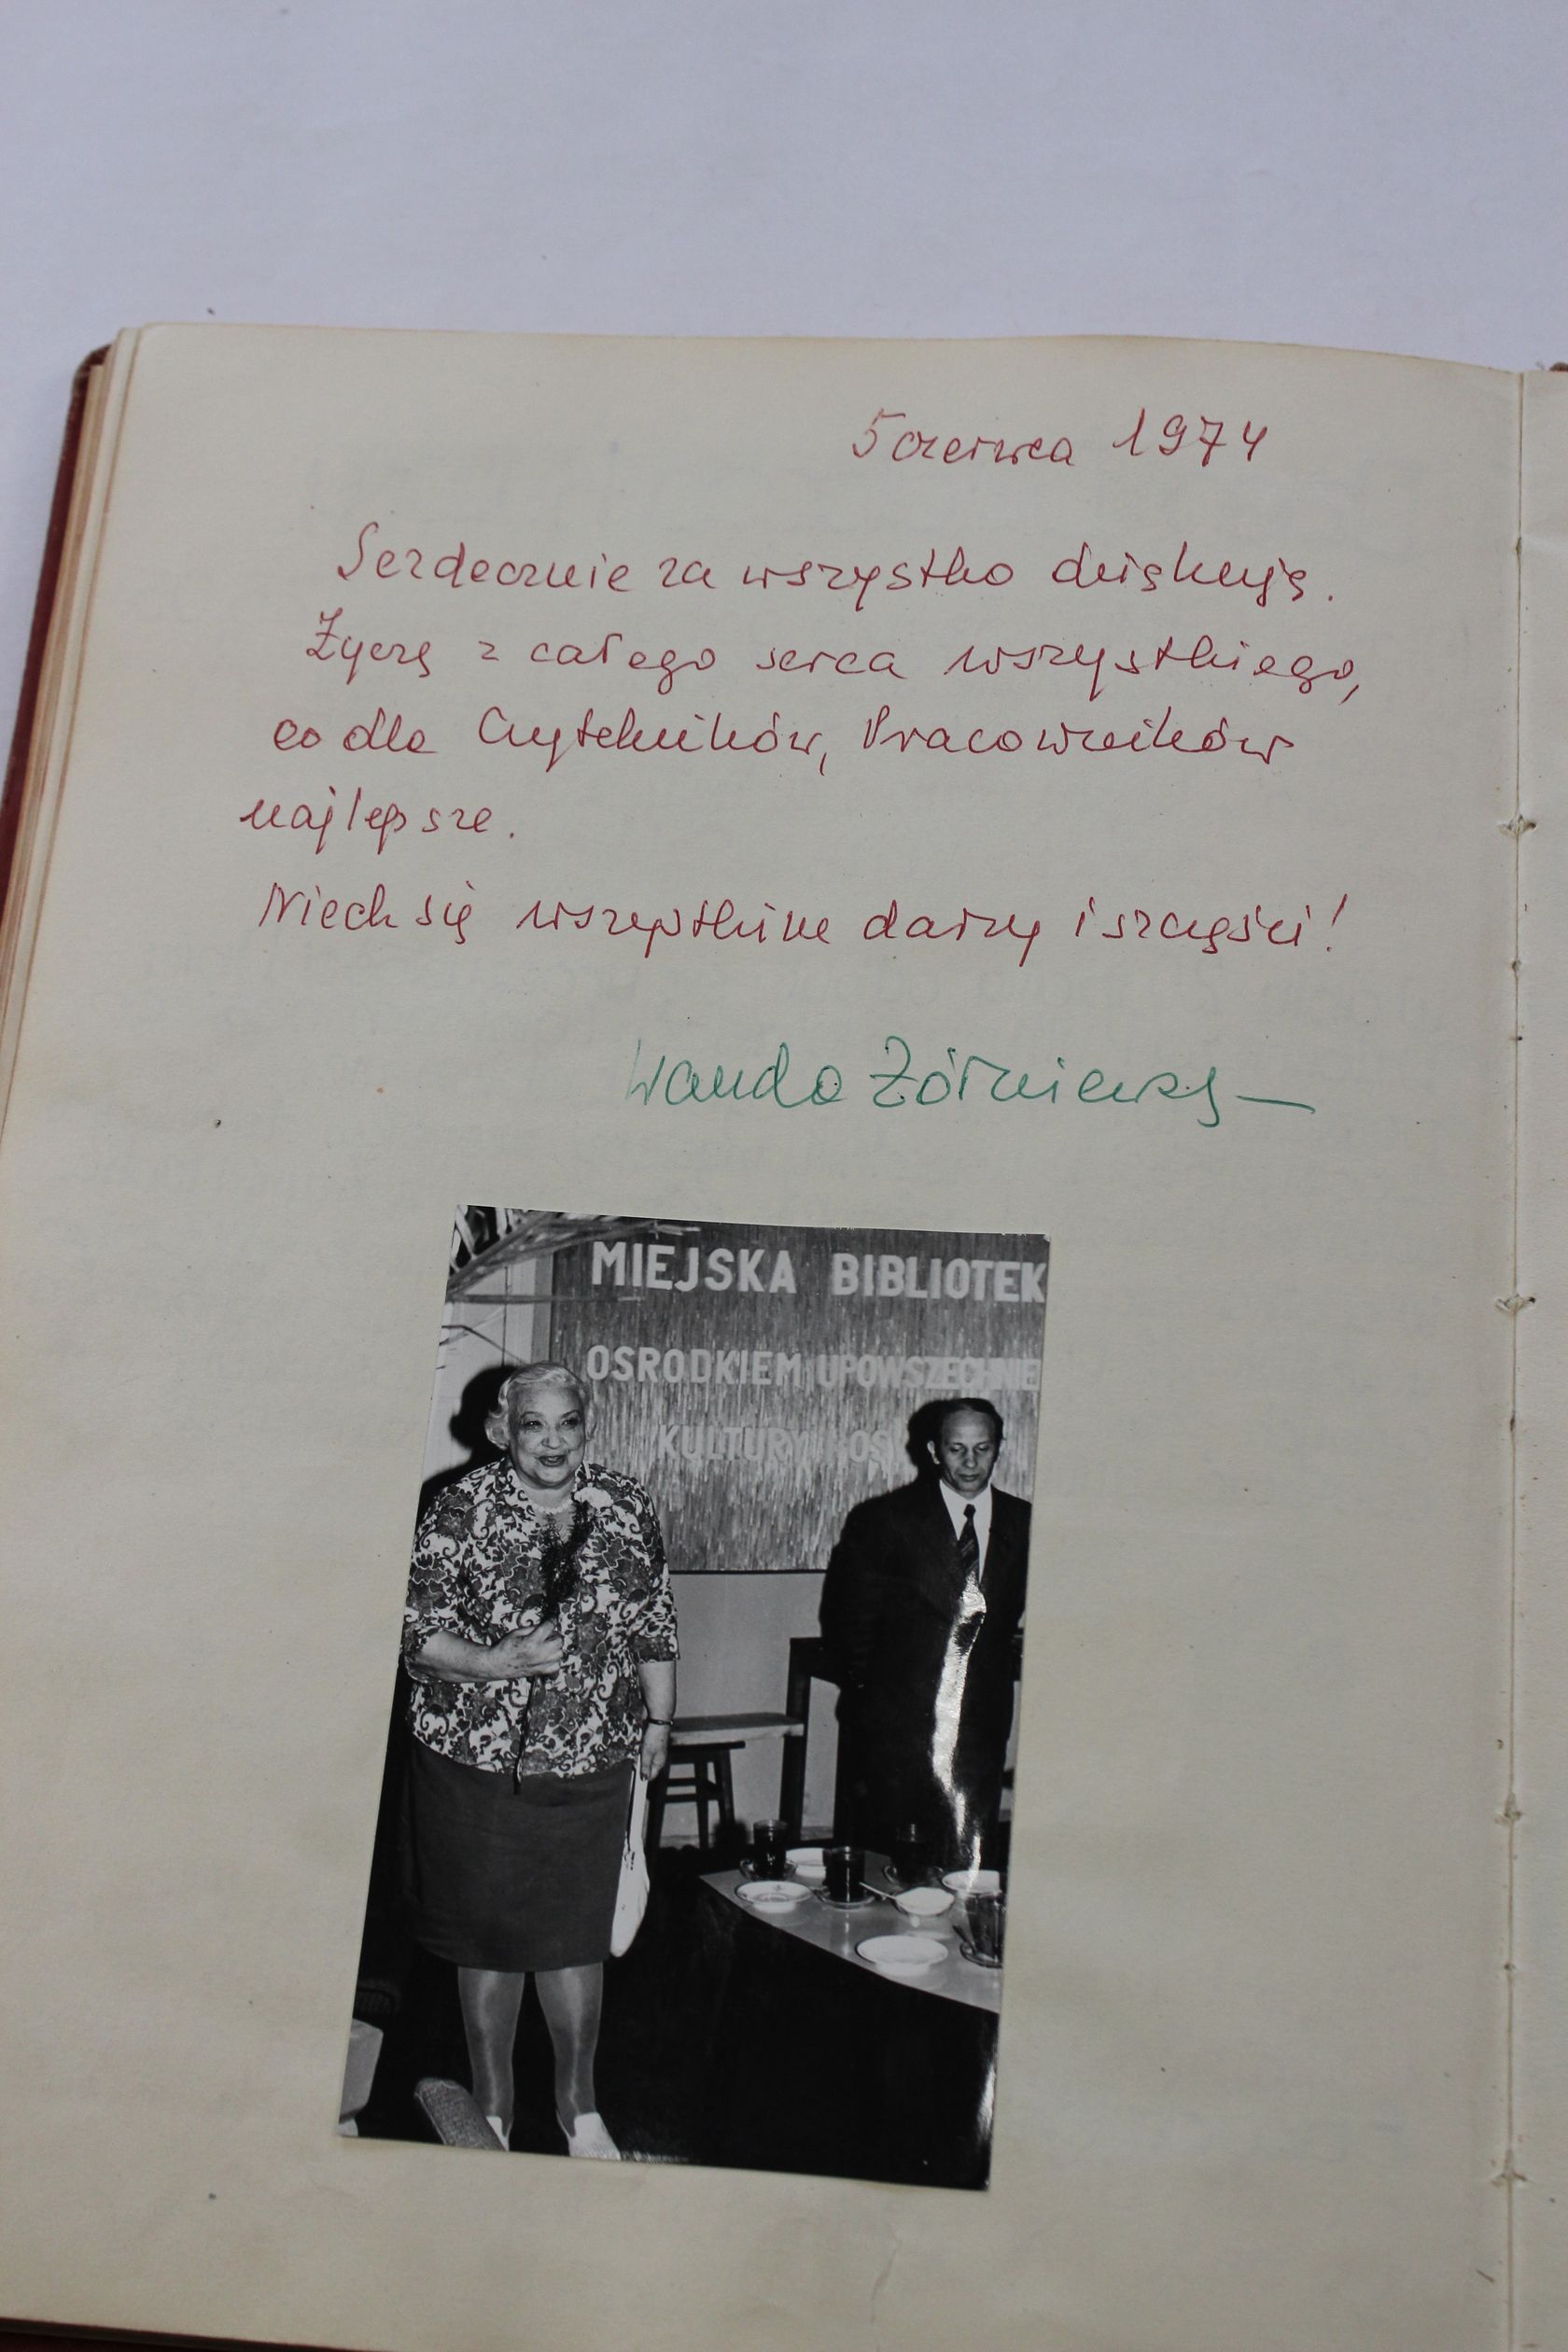 5 czerwca 1974
Serdecznie za wszystko dziękuję.
Życzę z całego serca wszystkiego,
co dla Czytelników, Pracowników
najlepsze.
Niech się wszystkim darzy i szczęści!
Wanda Żółkiewska
MIEJSKA BIBLIOTEK
OŚRODKIEM UPOWSZECHNIE
KULTURY I OŚ